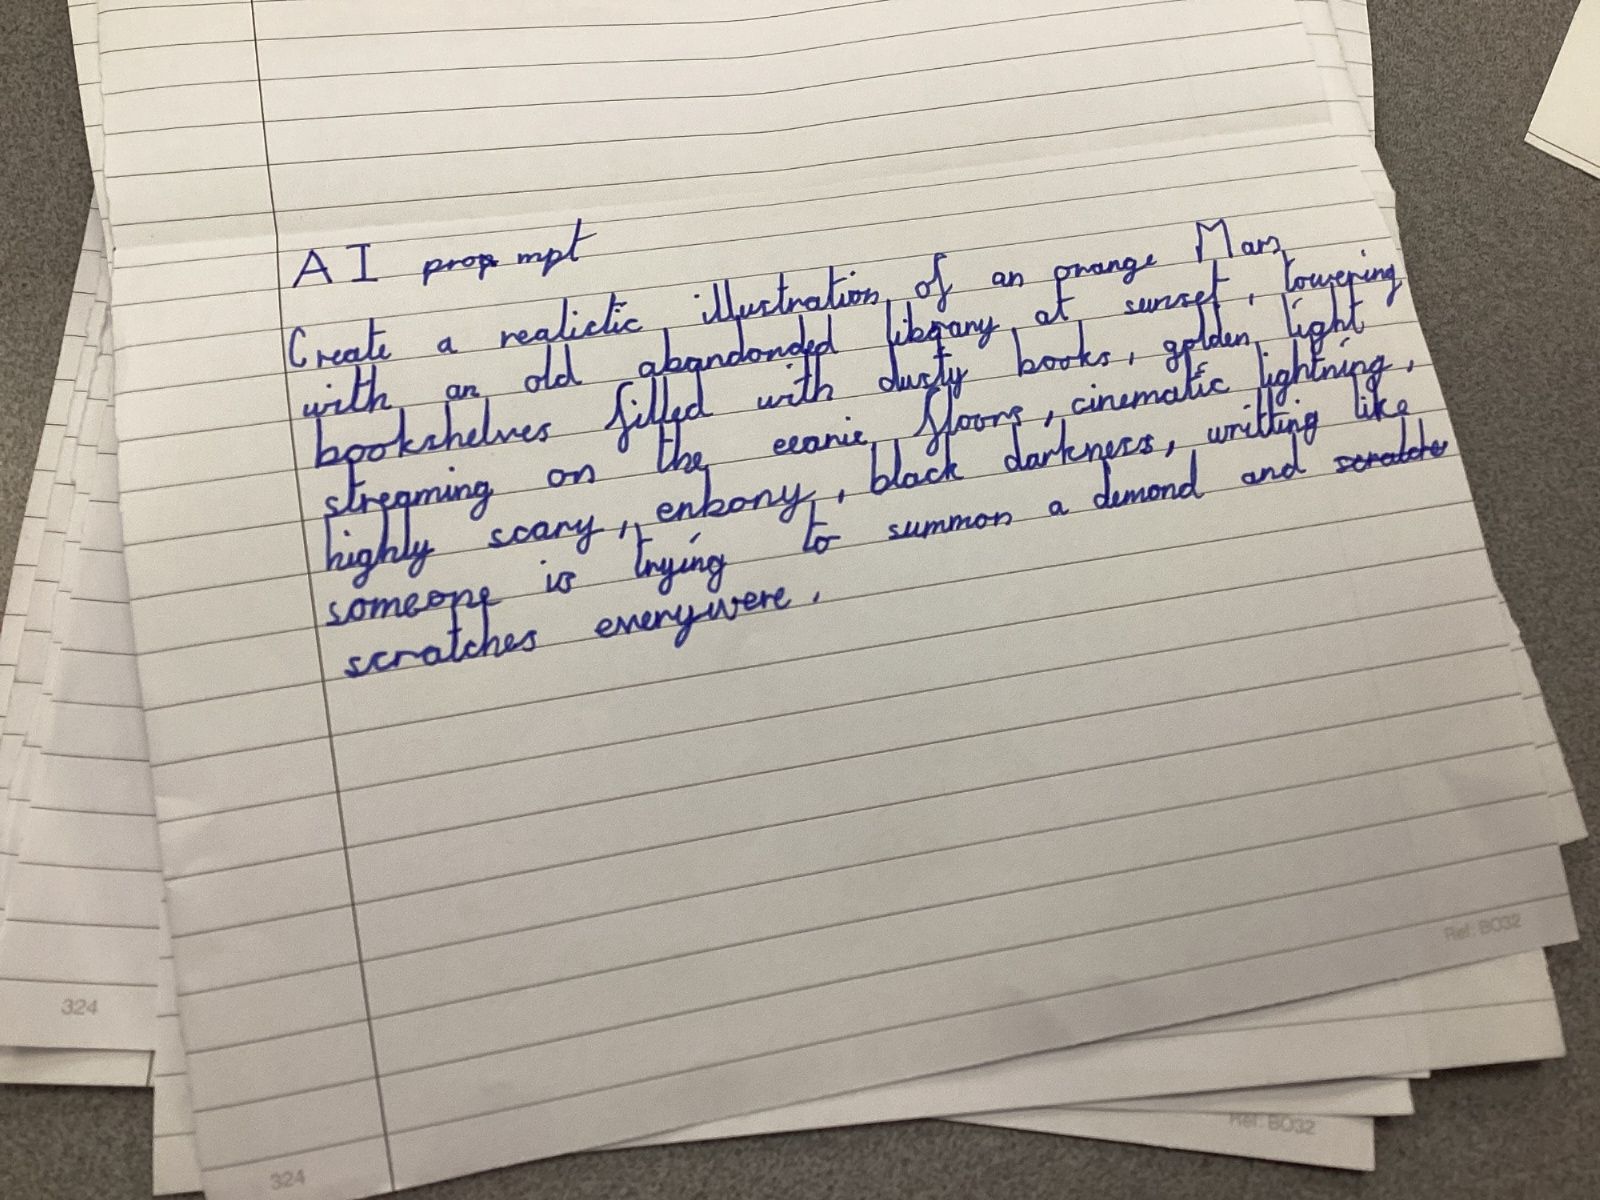 AI prop mpt
Create a realictic illustration of an orange Mars
with an old abandonded library at sunset, towering
bookshelves filled with dusty books, golden light
streaming on the eeanie floors, cinematic lightning,
highly scary, enbony, black darkness, writting like
someone is trying to summon a demond and scratche
scratches everywere.
Ref: BO32
324
Ref: BO32
324